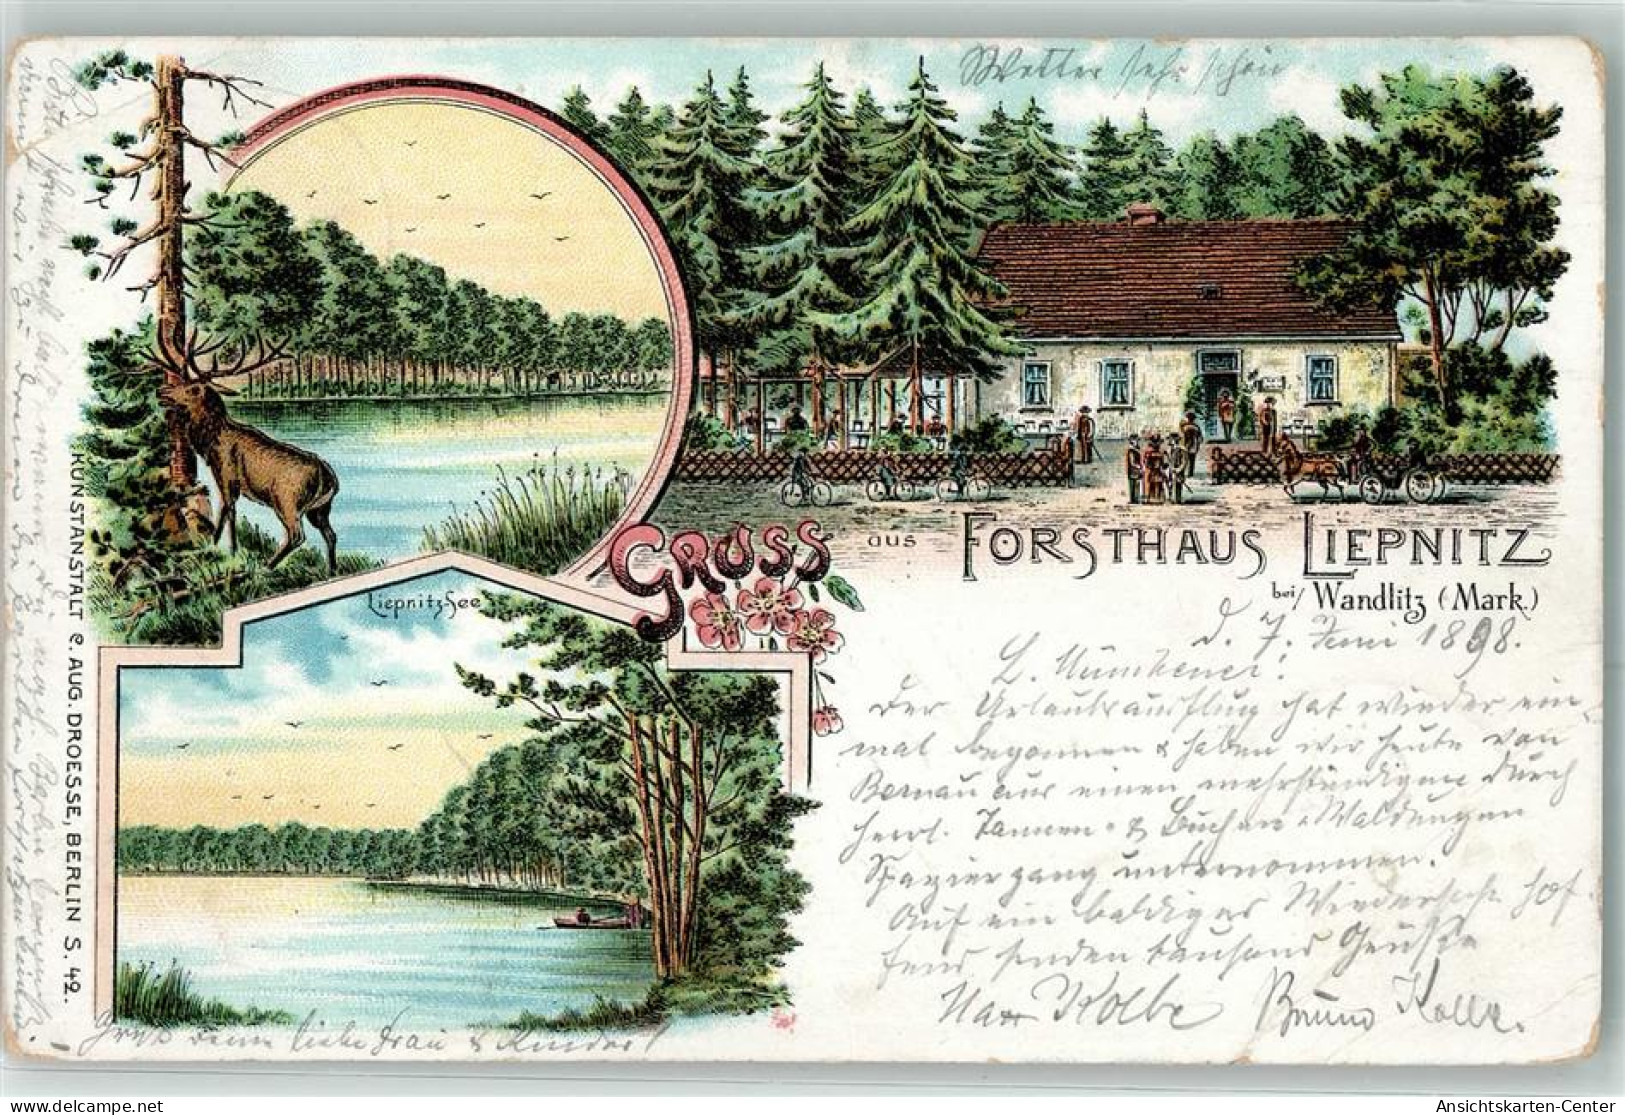 Wetter sehr schön
GRUSS aus FORSTHAUS LIEPNITZ
bei/ Wandlitz (Mark.)
Liepnitz-See
KUNSTANSTALT C. AUG. DROESSE, BERLIN S. 42.
d. 7. Juni 1898.
Der Urlaubsausflug hat wieder ein-
mal begonnen & haben wir heute von
Bernau aus einen mehrstündigen durch
herrl. Tannen- & Buchen-Waldungen
Spaziergang unternommen.
Auf ein baldiges Wiedersehn hof-
fend senden tausend Grüße
Max Kolbe Bruno Kolbe.
Gruß deine liebe Frau & Kinder!
delcampe.net
Ansichtskarten-Center